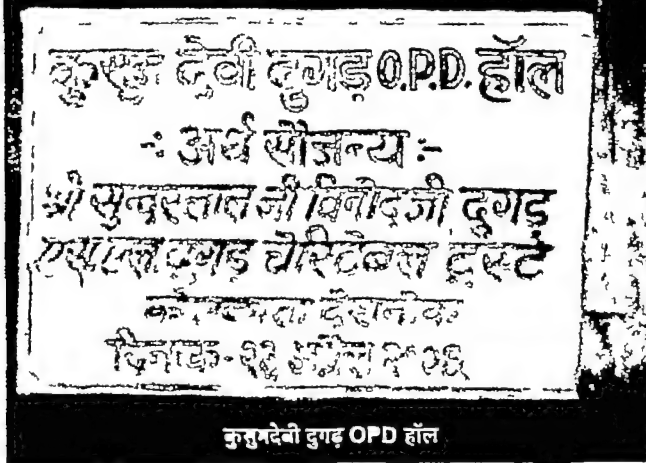 कुसुम देवी दुगड़ O.P.D. हॉल
-: अर्थ सौजन्य :-
श्री सुन्दरलाल जी विनोद जी दुगड़
दुगड़ चेरिटेबल ट्रस्ट
दिनांक-
कुसुमदेवी दुगढ़ OPD हॉल